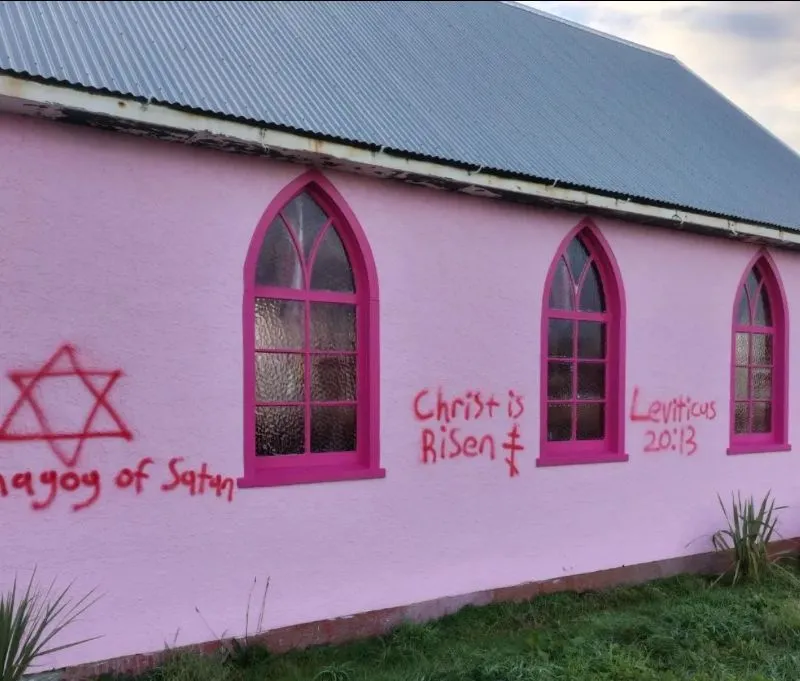 nagog of Satan
Christ is
Risen
Leviticus
20:13